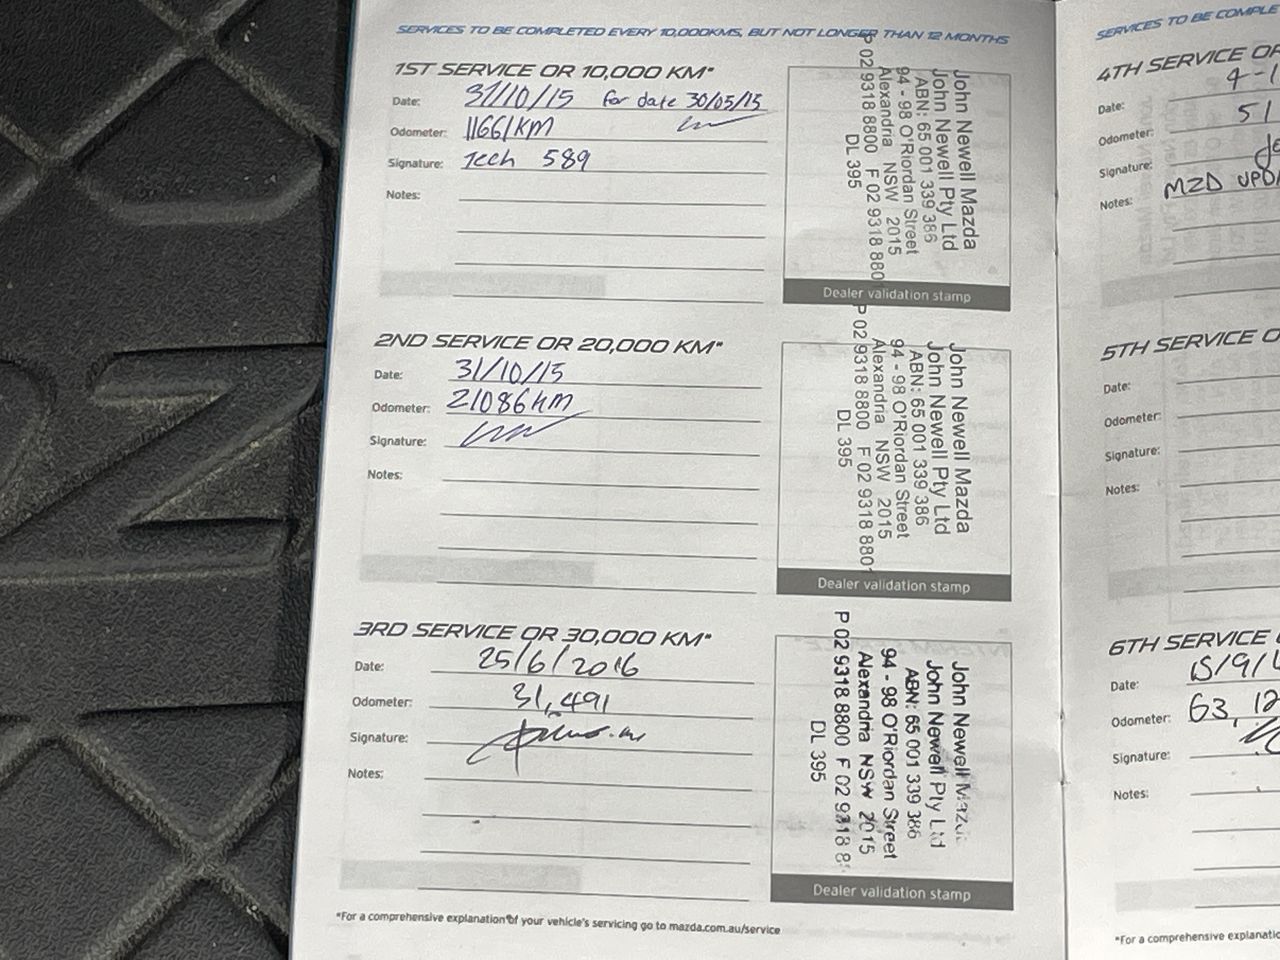 SERVICES TO BE COMPLETED EVERY 10,000KMS, BUT NOT LONGER THAN 12 MONTHS
1ST SERVICE OR 10,000 KM*
Date: 31/10/15 for date 30/05/15
Odometer: 11661KM
Signature: Tech 589
Notes:
John Newell Mazda
John Newell Pty Ltd
ABN: 65 001 339 386
94 - 98 O'Riordan Street
Alexandria NSW 2015
P 02 9318 8800 F 02 9318 8801
DL 395
Dealer validation stamp
2ND SERVICE OR 20,000 KM*
Date: 31/10/15
Odometer: 21086KM
Signature:
Notes:
John Newell Mazda
John Newell Pty Ltd
ABN: 65 001 339 386
94 - 98 O'Riordan Street
Alexandria NSW 2015
P 02 9318 8800 F 02 9318 8801
DL 395
Dealer validation stamp
3RD SERVICE OR 30,000 KM*
Date: 25/6/2016
Odometer: 31,491
Signature:
Notes:
John Newell Mazda
John Newell Pty Ltd
ABN: 65 001 339 386
94 - 98 O'Riordan Street
Alexandria NSW 2015
P 02 9318 8800 F 02 9318 8
DL 395
Dealer validation stamp
*For a comprehensive explanation of your vehicle's servicing go to mazda.com.au/service
SERVICES TO BE COMPLE
4TH SERVICE OR
Date: 4-1
Odometer: 51
Signature:
Notes: MZD UPD
5TH SERVICE O
Date:
Odometer:
Signature:
Notes:
6TH SERVICE
Date: 15/9/
Odometer: 63,12
Signature:
Notes:
*For a comprehensive explanatio